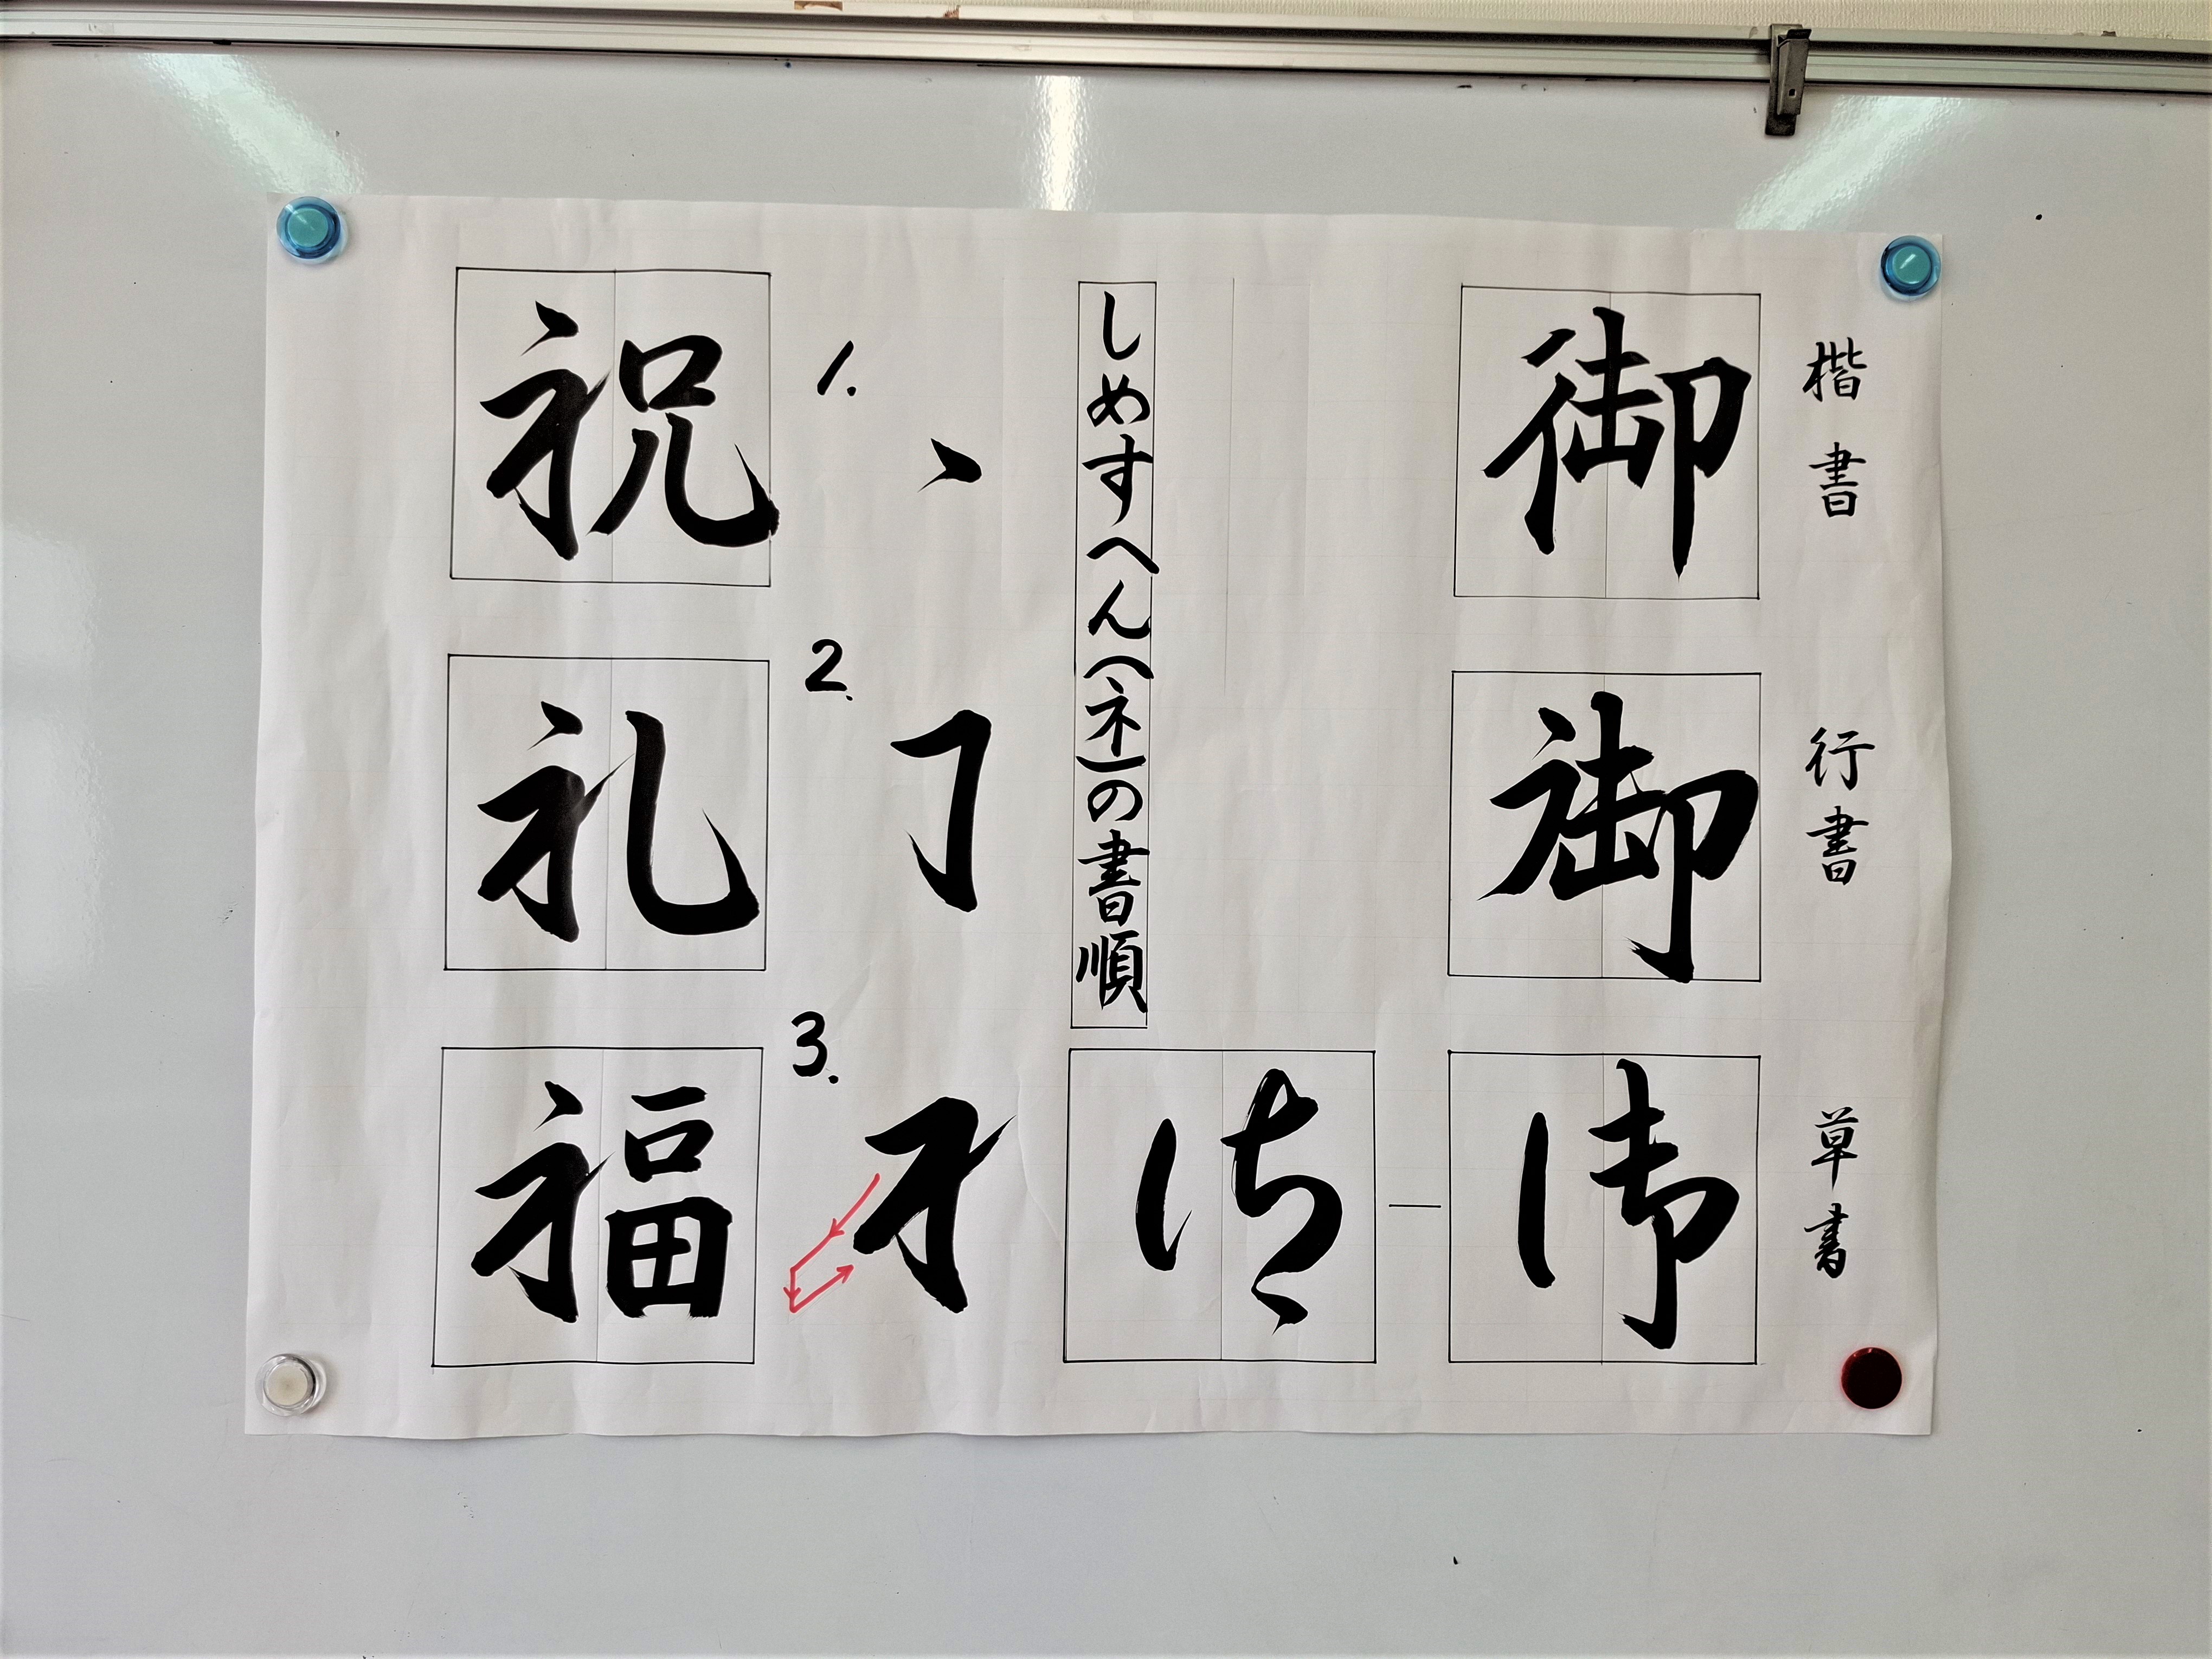 楷書
行書
草書
御
御
御
御
しめすへん(ネ)の書順
1.
2.
3.
祝
礼
福